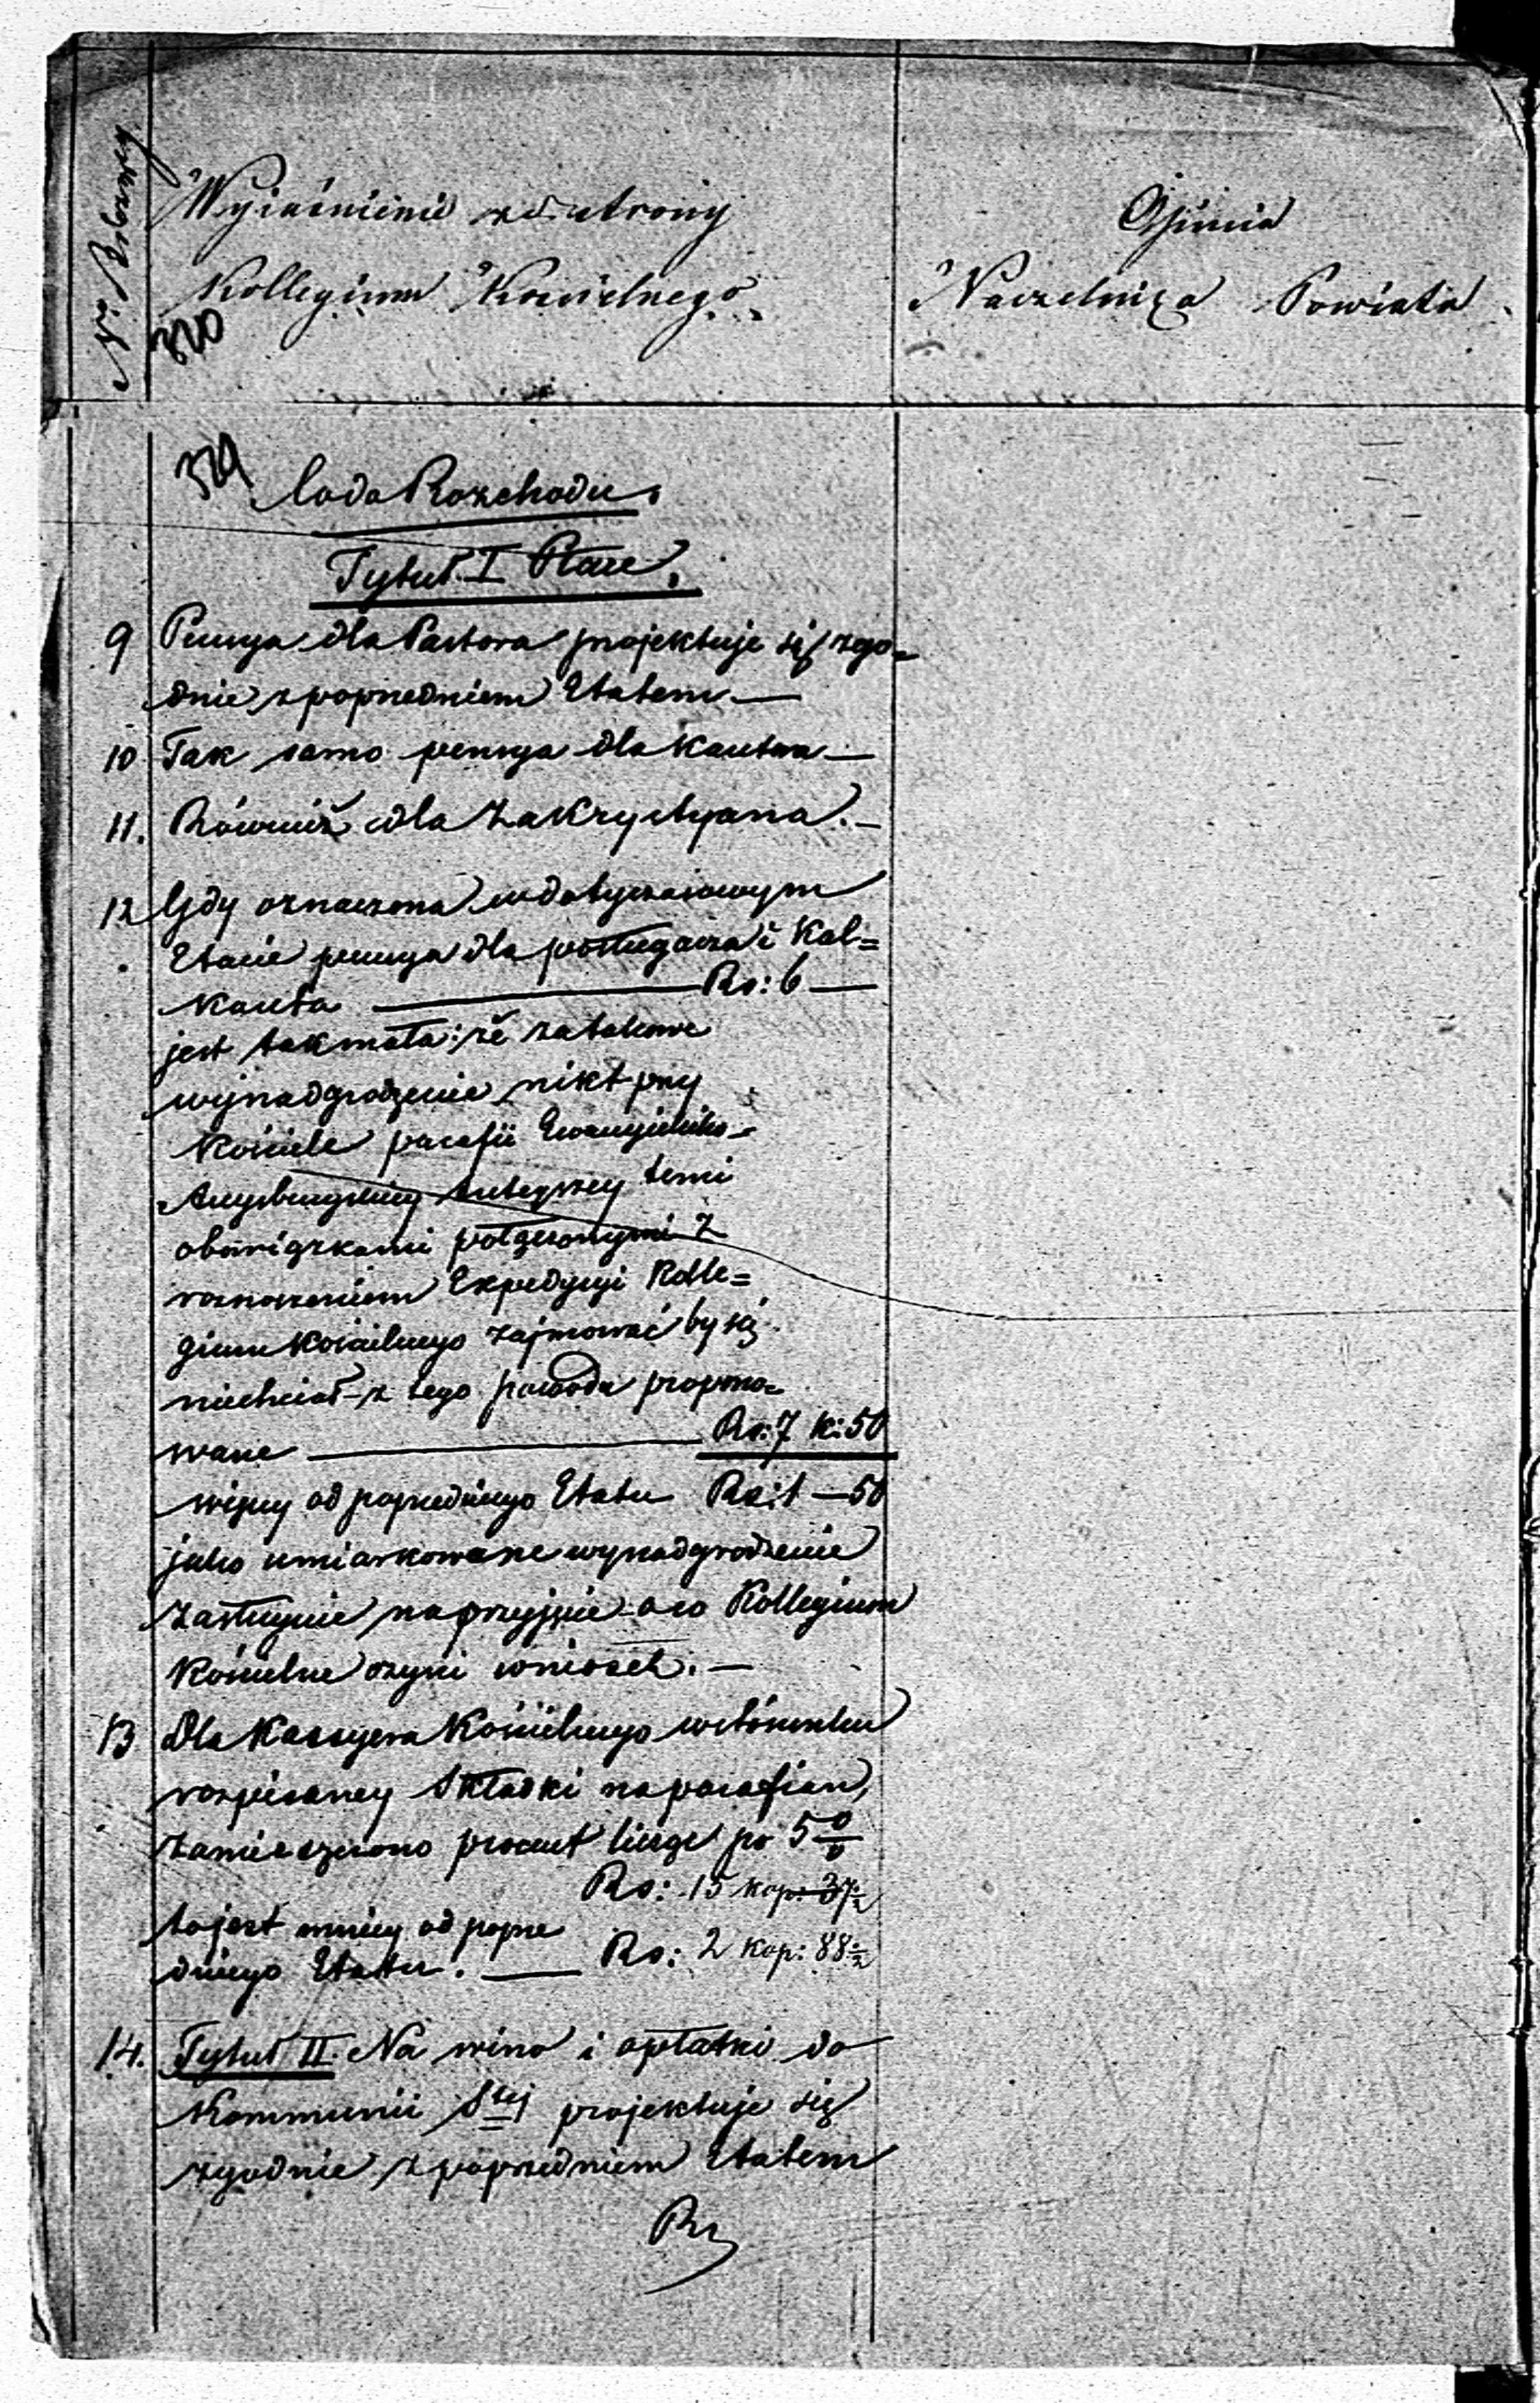 Nr. Bieżący
Wyiaśnienie ze strony
Kollegium Kościelnego.
Opinia
Naczelnika Powiatu
320
329
Co do Rozchodu.
Tytuł I Płace.
9 Pensya dla Pastora projektuje się zgo=
dnie z poprzedniem Etatem —
10 Tak samo pensya dla Kantora —
11. Również dla Zakrystyana. —
12 Gdy oznaczona w dotychczasowym
Etacie pensya dla posługacza i Kal=
kanta — Rs: 6 —
jest tak mała: że za takowe
wynadgrodzenie nikt przy
Kościele parafii Ewangielicko-
Augsburgskiey tutejszey temi
obowiązkami połączonymi z
roznoszeniem Expedycyi Kolle=
gium Kościelnego zajmować by się
niechciał — z tego powodu propono=
wane — Rs: 7 k: 50
więcey od poprzedniego Etatu Rs: 1 — 50
jako umiarkowane wynadgrodzenie
zasługuie na przyjęcie — o co Kollegium
Kościelne czyni wniosek. —
13 Dla Kassyera Kościelnego w stósunku
rozpisaney Składki na parafian,
zamieszczono procent licząc po 5 %
Rs: 15 kop: 37½
to jest mniey od poprze
dniego Etatu. — Rs: 2 kop: 88½
14. Tytuł II. Na wino i opłatki do
Kommunii Stej projektuje się
zgodnie z poprzedniem Etatem
Rs